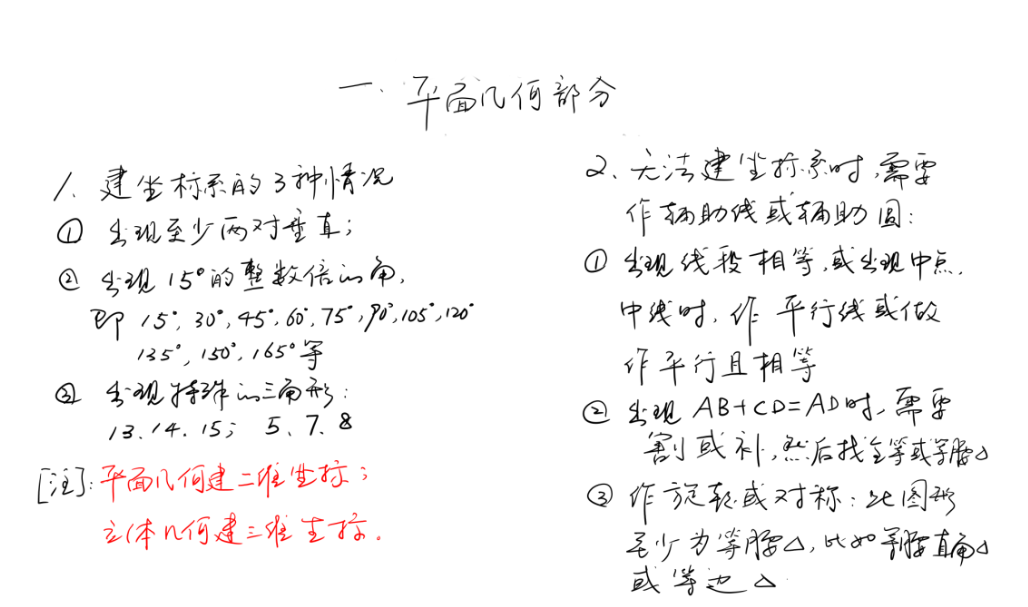 一、平面几何部分
1、建坐标系的3种情况
① 出现至少两对垂直;
② 出现15°的整数倍的角,
即 15°,30°,45°,60°,75°,90°,105°,120°
135°,150°,165°等
③ 出现特殊的三角形:
13.14.15; 5、7、8
[注]:平面几何建二维坐标;
立体几何建三维坐标。
2、无法建坐标系时,需要
作辅助线或辅助圆:
① 出现线段相等,或出现中点,
中线时,作平行线或做
作平行且相等
② 出现AB+CD=AD时,需要
割或补,然后找全等或等腰△
③ 作旋转或对称:此图形
至少为等腰△,比如等腰直角△
或等边△